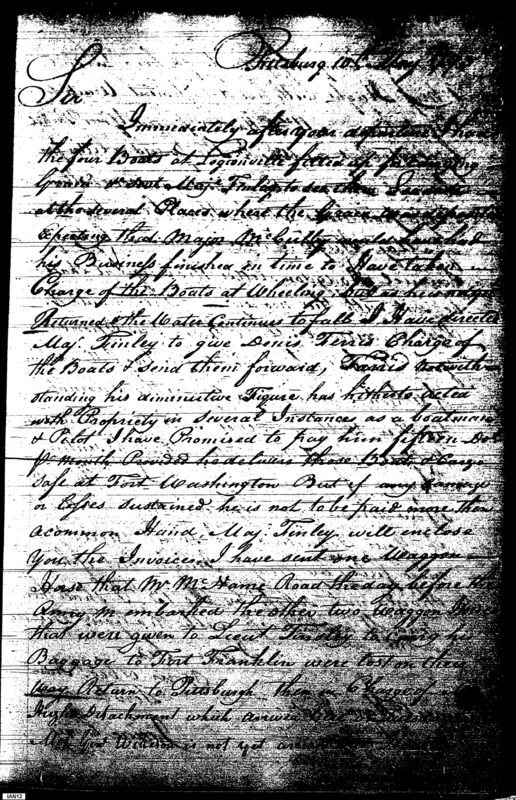 Pittsburg 10th May
Sir
Immediately after your departure I had
the four Boats at Legionville fitted up for
Grain & sent Maj. Finley to see them
at the several Places where the Grain was deposited
expecting that Major McCully would have had
his Business finished in time to have taken
Charge of the Boats at Wheeling, But as he is not yet
Returned & the Water Continues to fall I Have directed
Maj. Finley to give Denis Ferris Charge of
the Boats & send them forward, Farris notwith=
standing his diminutive Figure has hitherto acted
with Propriety in several Instances as a boatman
& Pilot I have Promised to pay him fifteen Dol
pr month Provided he delivers those Boats & Cargo
safe at Fort Washington But if any damage
or Losses sustained he is not to be paid more than
a common Hand, Maj. Finley will enclose
You the Invoices. I have sent one Waggon
Horse that Mr. Mc Road the day before the
Army embarked the other two Waggon Horses
that were given to Lieut to carry his
Baggage to Fort Franklin were lost on their
Way Return to Pittsburgh then in Charge of
Detachment which
is not yet
IAN12